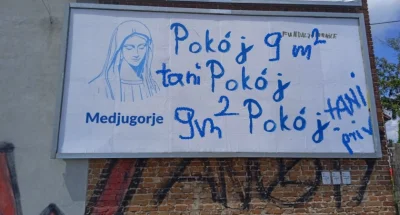 Pokój 9 m²
tani Pokój
9m² Pokój tANi
priv
Medjugorje